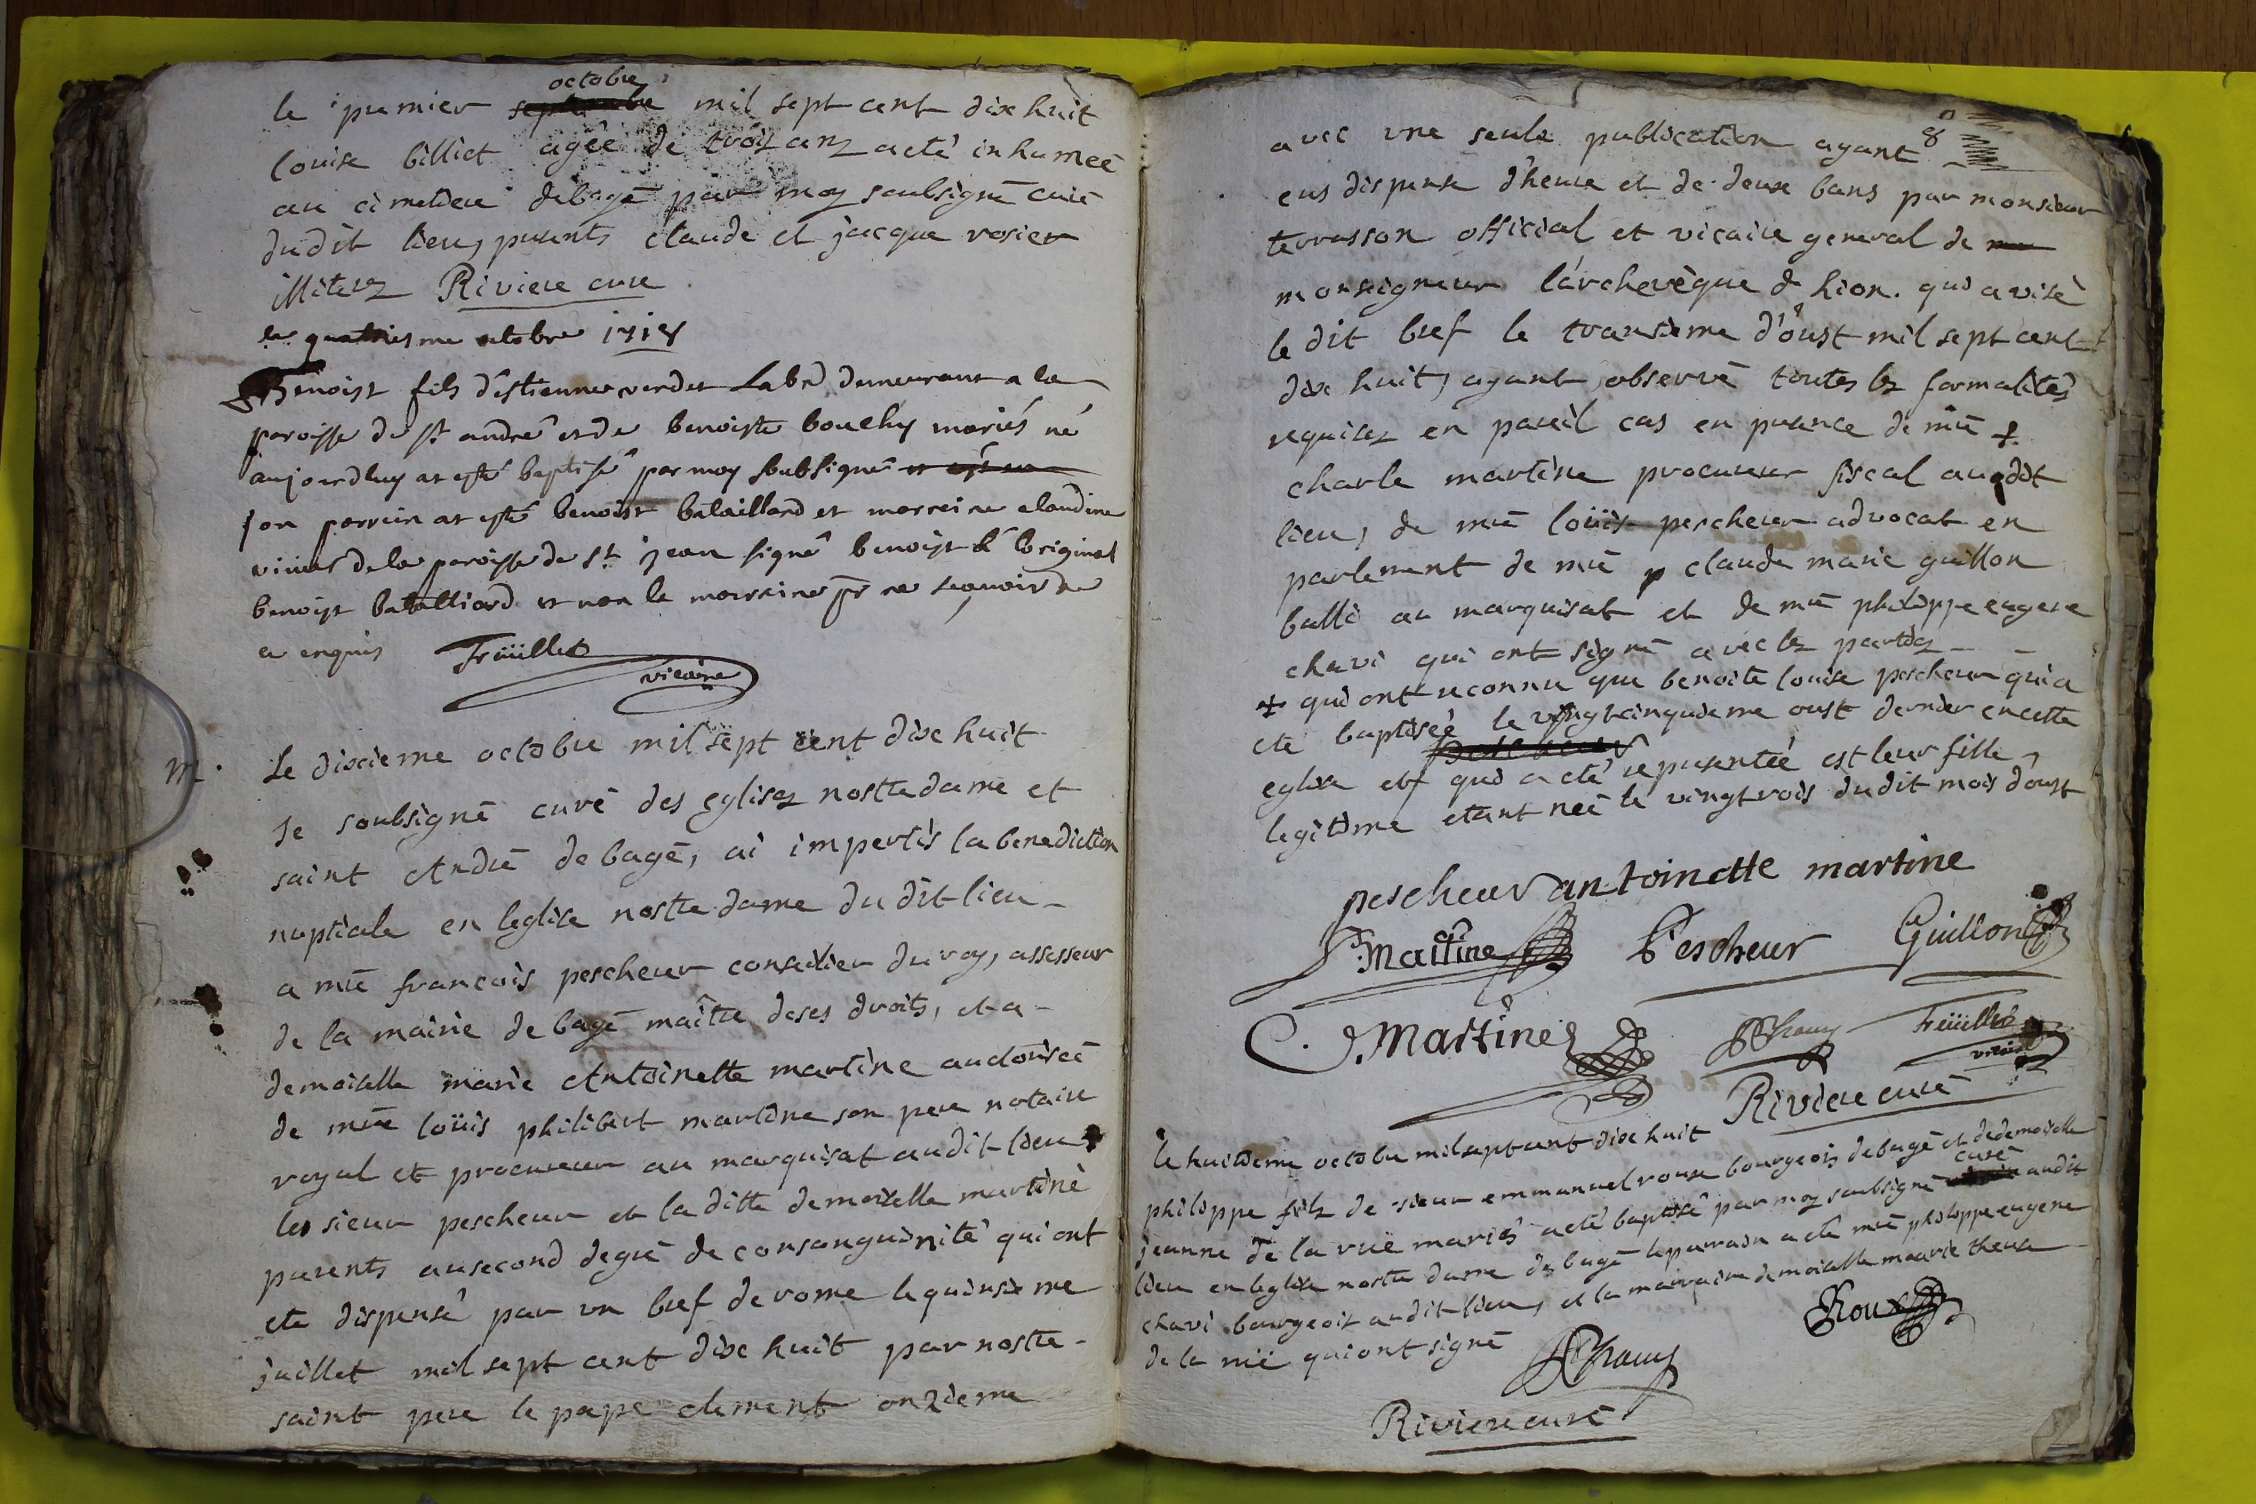 octobre
le premier septembre mil sept cent dixe huit
louise billiet agée de troiz anz a eté inhumeé
au cimetiere de bagé par moy soubsigné curé
dudit lieu, presents claude et jacque rosier
illiterez Riviere cure
le quatriesme octobre 1718
Benoist fils d'estienne verdet Labr demeurant a la
paroisse de st andré et de benoiste bouchy mariés né
aujourdhuy at esté baptisé par moy soubsigné
son parrein at esté benoist bataillard et marreine claudine
de la paroisse de st jean signé benoist a l'original
benoist batalliard et non la marreine pr ne scavoir de
ce enquis Freüillet
vicaire
m.
Le dixieme octobre mil sept cent dixe huit
Je soubsigné curé des eglisez nostre dame et
saint André de bagé, ai impertis la benediction
nuptiale en leglise nostre dame du dit lieu
a mre françois pescheur conseilier du roy, assesseur
de la mairie de bagé maître de ses droits, et a
demoiselle marie Antoinette martine auctorisée
de mre loüis philibert martine son pere notaire
royal et procureur au marquisat audit lieu
les sieur pescheur et la ditte demoiselle martine
parents au second degré de consanguinité qui ont
eté dispensé par un bref de rome le quinsieme
juillet mil sept cent dixe huit par nostre
saint pere le pape clement onzieme
8
avec une seule publication ayant
eus dispense d'heure et de deux bans par monsieur
terrasson official et vicaire general de
monseigneur l'archevèque de lion. qui a visé
le dit bref le traisieme d'oust mil sept cent
dixe huit, ayant observé toutes lez formalitéz
requisez en pareil cas en presence de mre +
charle martine procureur fiscal audit
lieu, de mre loüis pescheur advocat en
parlement de mre p claude marie guillon
balli au marquisat et de mre philippe eugene
chavi qui ont signé avec lez partiez
+ qui ont reconnu que benoite louise pescheur qui a
eté baptisée le vingt cinquieme oust dernier en cette
pescheur
eglise et qui a eté representée est leur fille
legitime etant neé le vingt trois dudit mois d'oust
pescheur antoinette martine
Martine Pescheur Guillon
C. J. Martine Chavy Freüillet
vicaire
Riviere curé
le huitieme octobre mil sept cent dixe huit
philippe filz de sieur emmanuel roux bourgeois de bagé et de demoiselle
curé
jeanne de la rüe mariéz a eté baptisé par moy soubsigné audit
lieu en leglise nostre dame de bagé le parrain a eté mre philippe eugene
chavi bourgeois audit lieu, et la marraine demoiselle marie therese
de la rüe qui ont signé Chavy Roux
Riviere curé